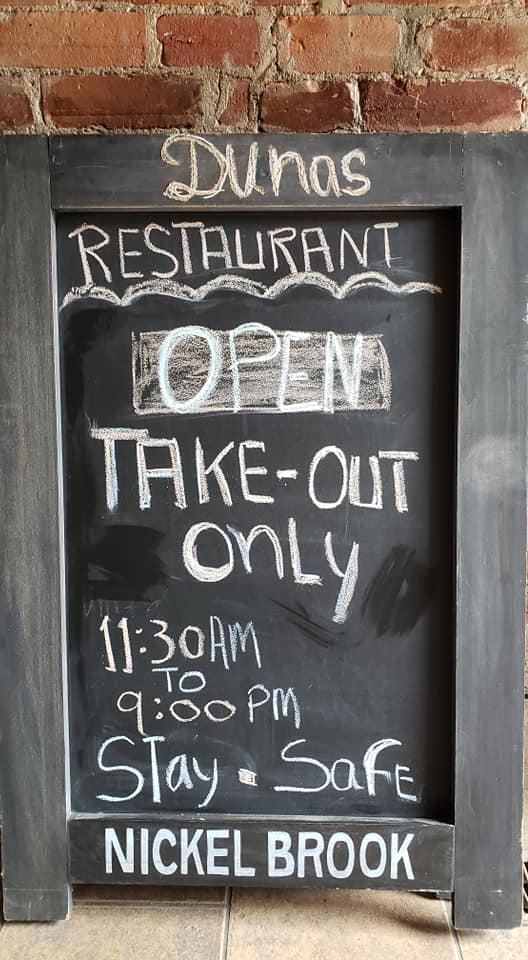 Dunas
RESTAURANT
OPEN
TAKE-OUT
ONLy
11:30AM
TO
9:00 PM
STay - SaFE
NICKEL BROOK